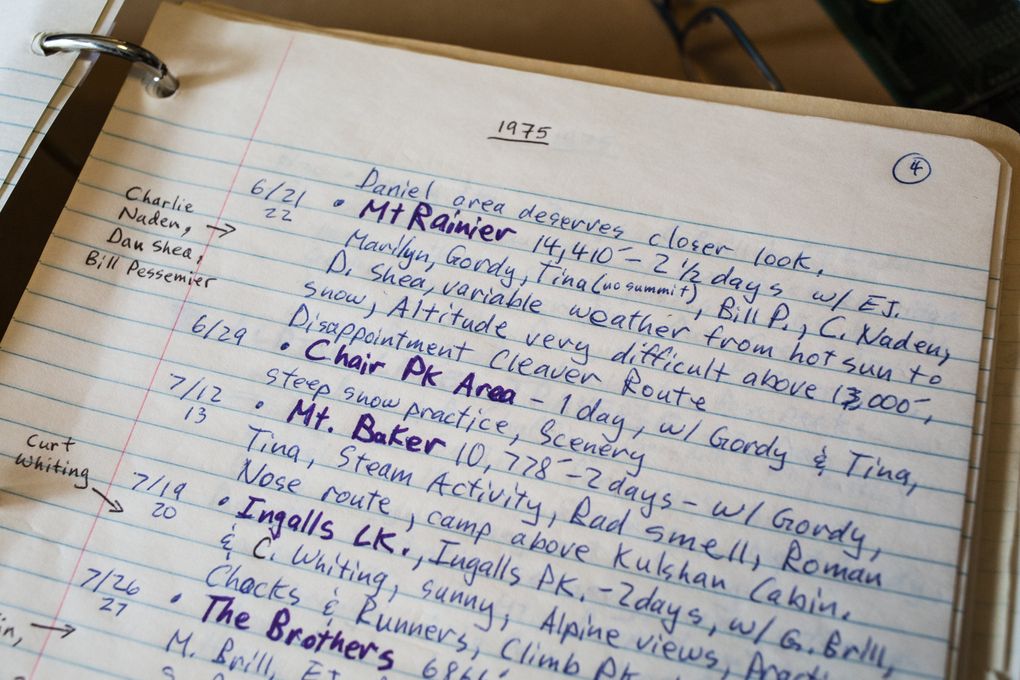 1975
4
Daniel area deserves closer look.
6/21
22
• Mt Rainier 14,410' - 2 1/2 days w/ EJ.
Charlie
Naden, →
Dan Shea,
Bill Pessemier
Marilyn, Gordy, Tina (no summit), Bill P., C. Naden,
D. Shea, variable weather from hot sun to
snow, Altitude very difficult above 13,000',
Disappointment Cleaver Route
6/29
• Chair PK Area - 1 day, w/ Gordy & Tina,
steep snow practice, Scenery
7/12
13
• Mt. Baker 10,778' - 2 days - w/ Gordy,
Tina, Steam Activity, Bad smell, Roman
Nose route, camp above Kulshan Cabin.
Curt
Whiting
7/19
20
• Ingalls LK., Ingalls PK. - 2 days, w/ G. Brill,
& C. Whiting, sunny, Alpine views,
Chocks & Runners, Climb PK
7/26
27
• The Brothers
M. Brill, EJ